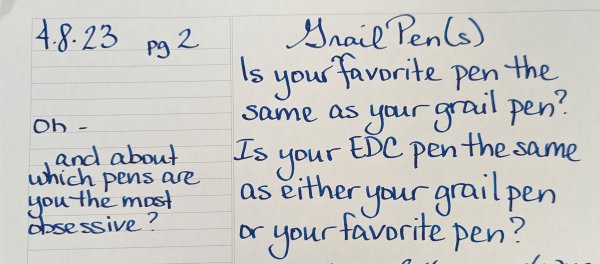 4.8.23 pg 2
Oh -
and about
which pens are
you the most
obsessive?
Grail Pen(s)
Is your favorite pen the
same as your grail pen?
Is your EDC pen the same
as either your grail pen
or your favorite pen?